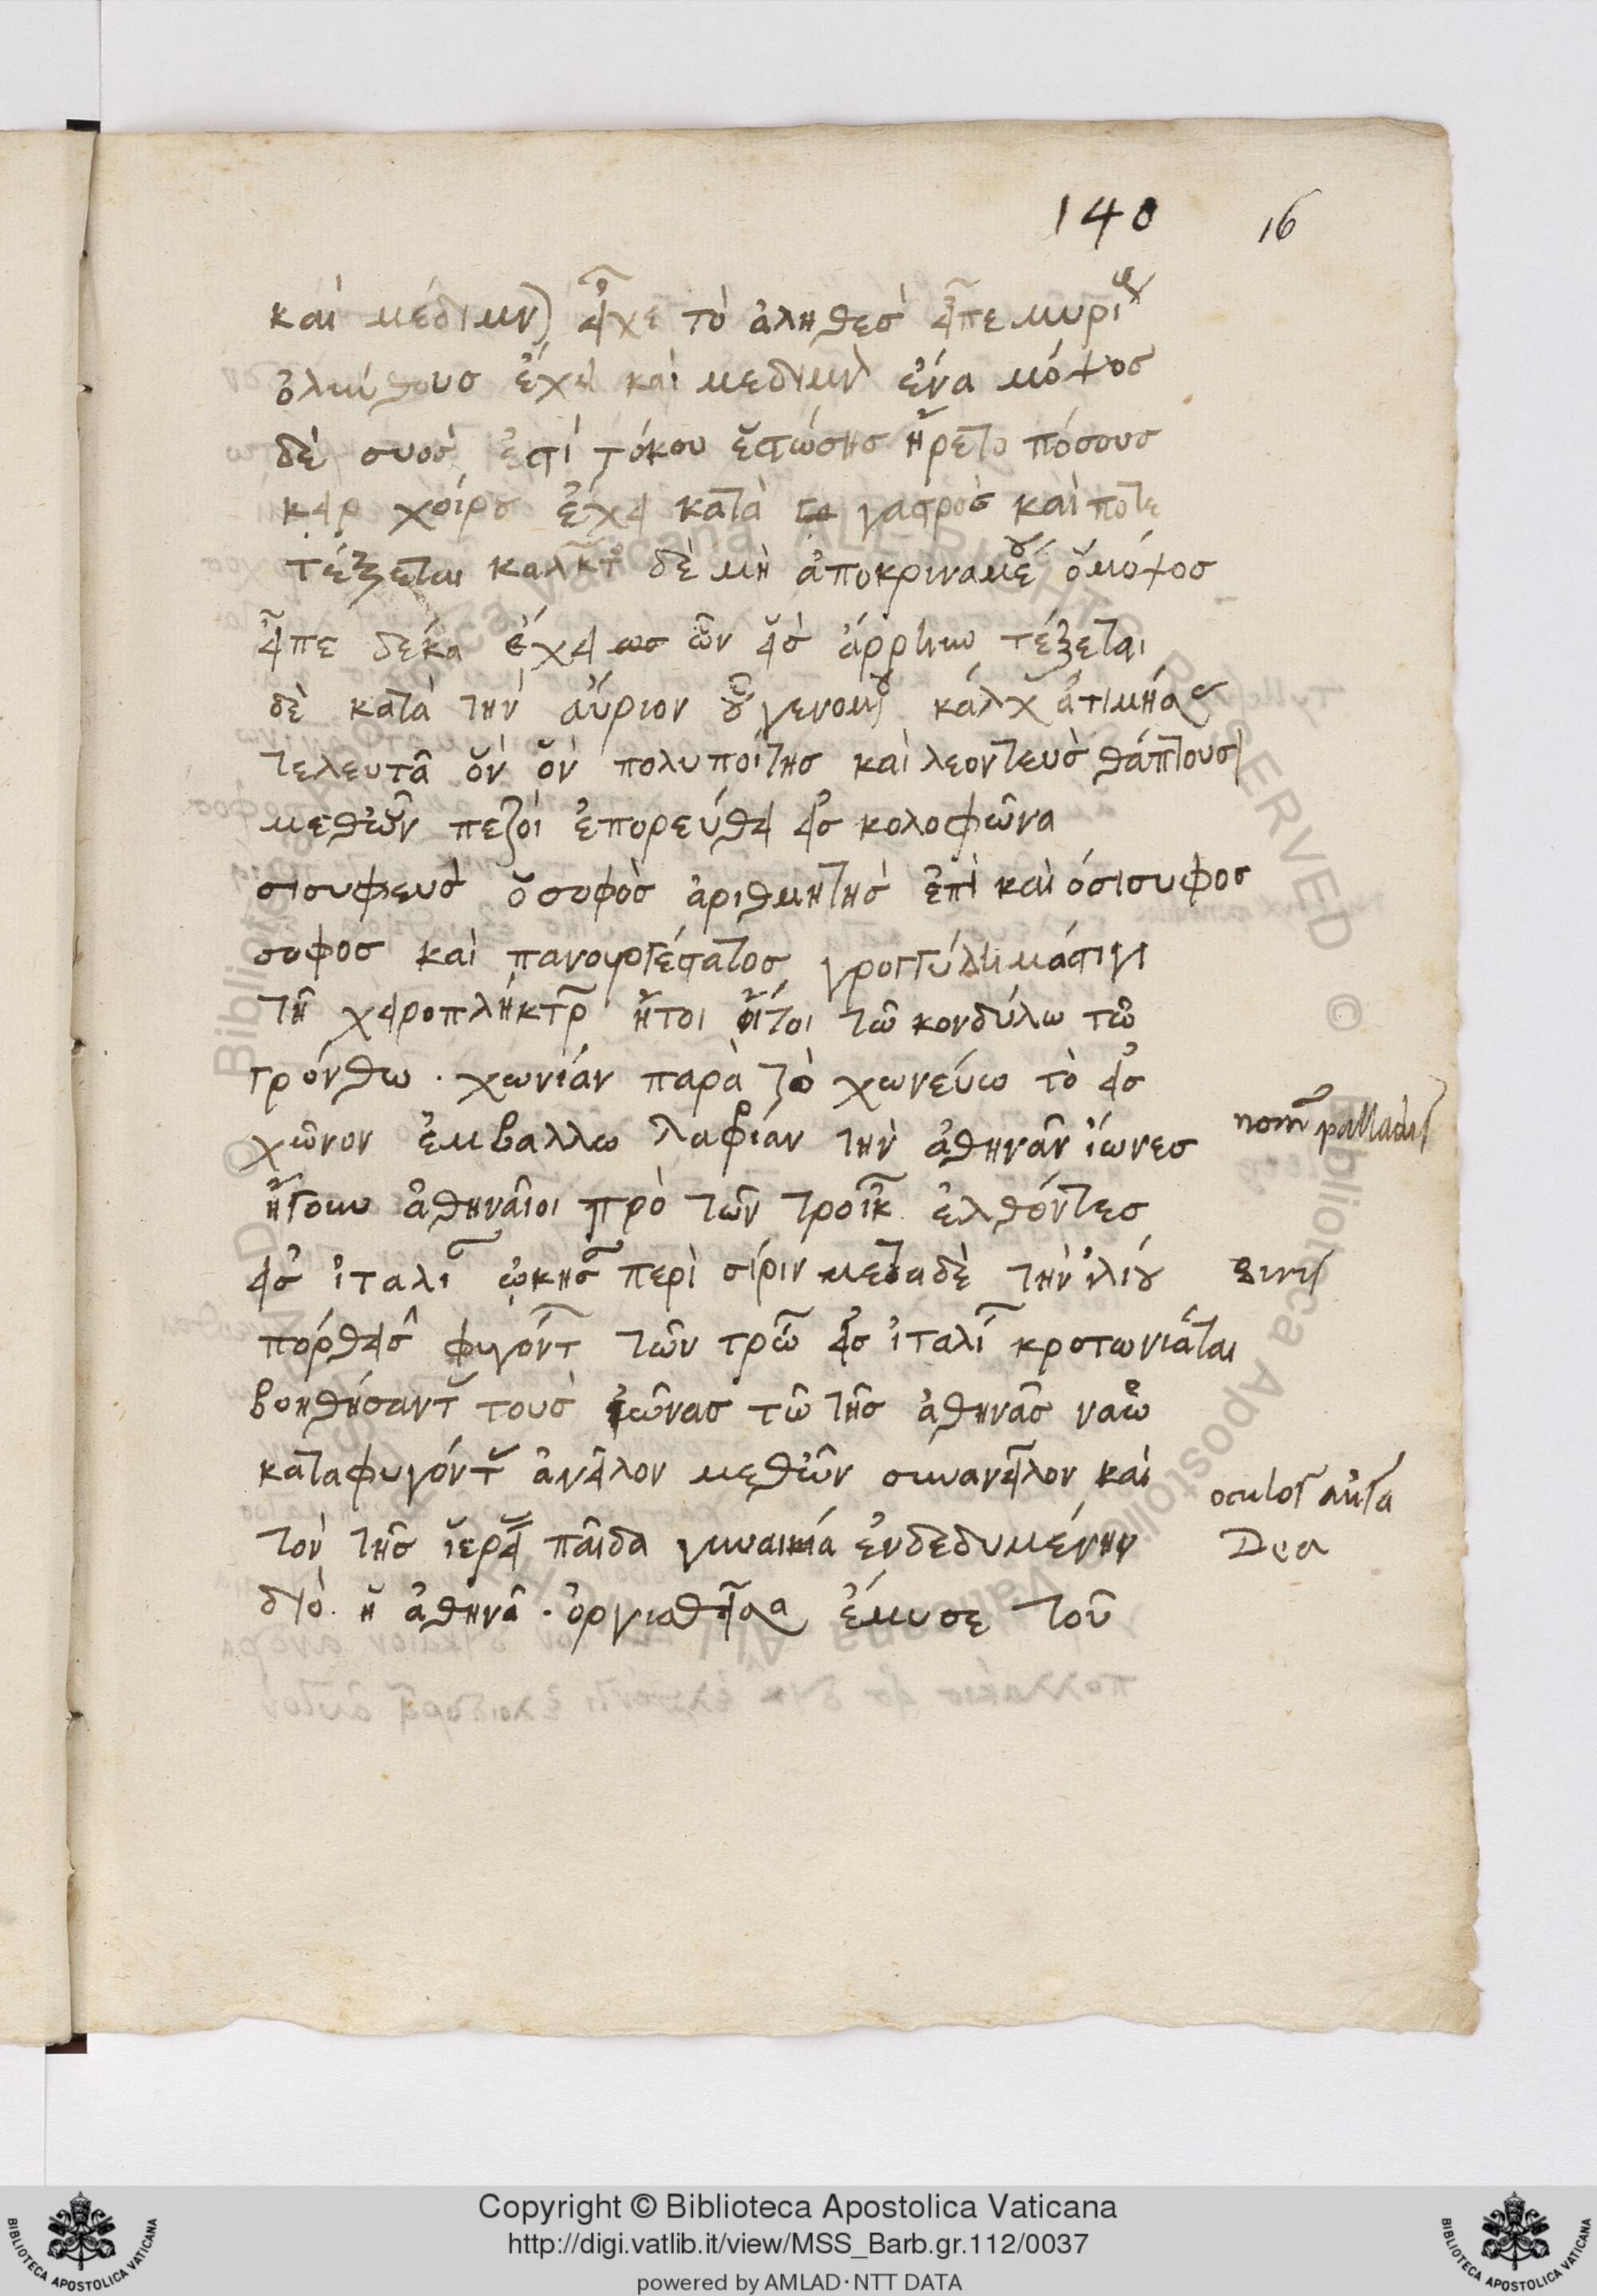 140 16
καὶ μέδιμν) εἶχε τὸ ἀληθὲσ εἶπε μυρί
ὀλύνθουσ ἔχει καὶ μεδιμν ἕνα μόψοσ
δὲ συὸσ ἐπὶ τόκου ἑστώσησ ἤρετο πόσουσ
χοίρουσ ἔχει κατὰ γαστρὸσ καὶ πότε
τέξεται καλκτ δὲ μὴ ἀποκριναμέ ὁ μόψοσ
εἶπε δέκα ἔχει ὧν εἷσ ἄρρην τέξεται
δὲ κατὰ τὴν αὔριον οὗ γενομ κάλχ
τελευτᾶ ὃν ὃν πολυποίτησ καὶ λεοντεὺσ θάπτουσι
μεθ ὧν πεζοὶ ἐπορεύθει εἰσ κολοφῶνα
σισυφεὺσ ὁ σοφὸσ ἀριθμητὴσ ἐπὶ καὶ ὁ σίσυφοσ
σοφοσ καὶ πανουργέστατοσ γρογγύλη μάστιγι
τῆ χειροπλήκτρ ἤτοι τῶ κονδύλω τῶ
γρόνθω · χωνίαν παρὰ τὸ χωνεύω τὸ εἰσ
χῶνον ἐμβαλλω λαφρίαν τὴν ἀθηνᾶν ἴωνεσ
nom palladis
ἤγουν ἀθηναῖοι πρὸ τῶν τροϊκ ἐλθόντεσ
εἰσ ἰταλί ᾤκησ περὶ σίριν μετα δὲ τὴν ἰλίου
Siris
πόρθεισ φυγόντ τῶν τρώ εἰσ ἰταλί κροτωνιᾶται
βοηθήσαντ τοὺσ ἰῶνασ τῶ τῆσ ἀθηνᾶσ ναῶ
καταφυγόντ ἀνεῖλον μεθ ὧν συνανεῖλον καὶ
oculos
τὸν τῆσ ἱερεί παῖδα γυναικία ἐνδεδυμένην
Dea
διὸ ἡ ἀθηνᾶ · ὀργισθεῖσα ἔμυσε τοῦ
Copyright © Biblioteca Apostolica Vaticana
http://digi.vatlib.it/view/MSS_Barb.gr.112/0037
powered by AMLAD·NTT DATA
BIBLIOTECA APOSTOLICA VATICANA
BIBLIOTECA APOSTOLICA VATICANA